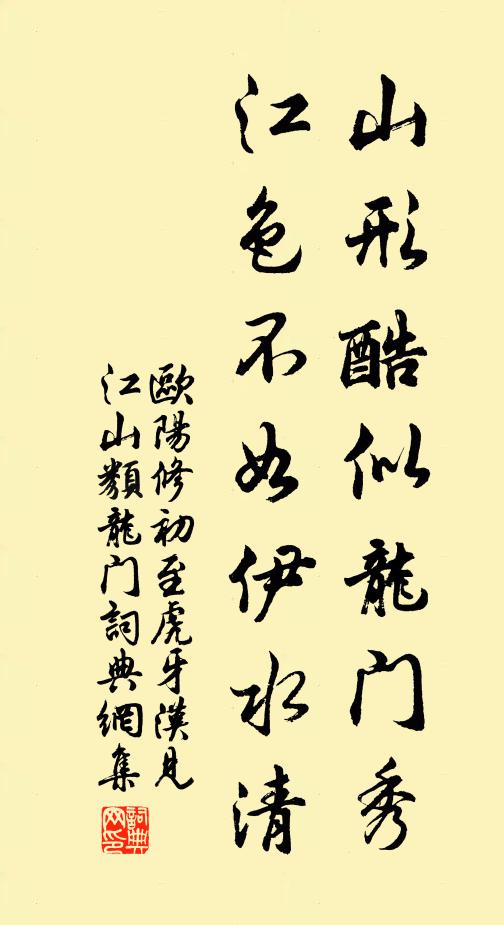 山形酷似龍门秀
江色不如伊水清
歐陽修初至虎牙漢見
江山類龍门詞典網集
詞典
网印